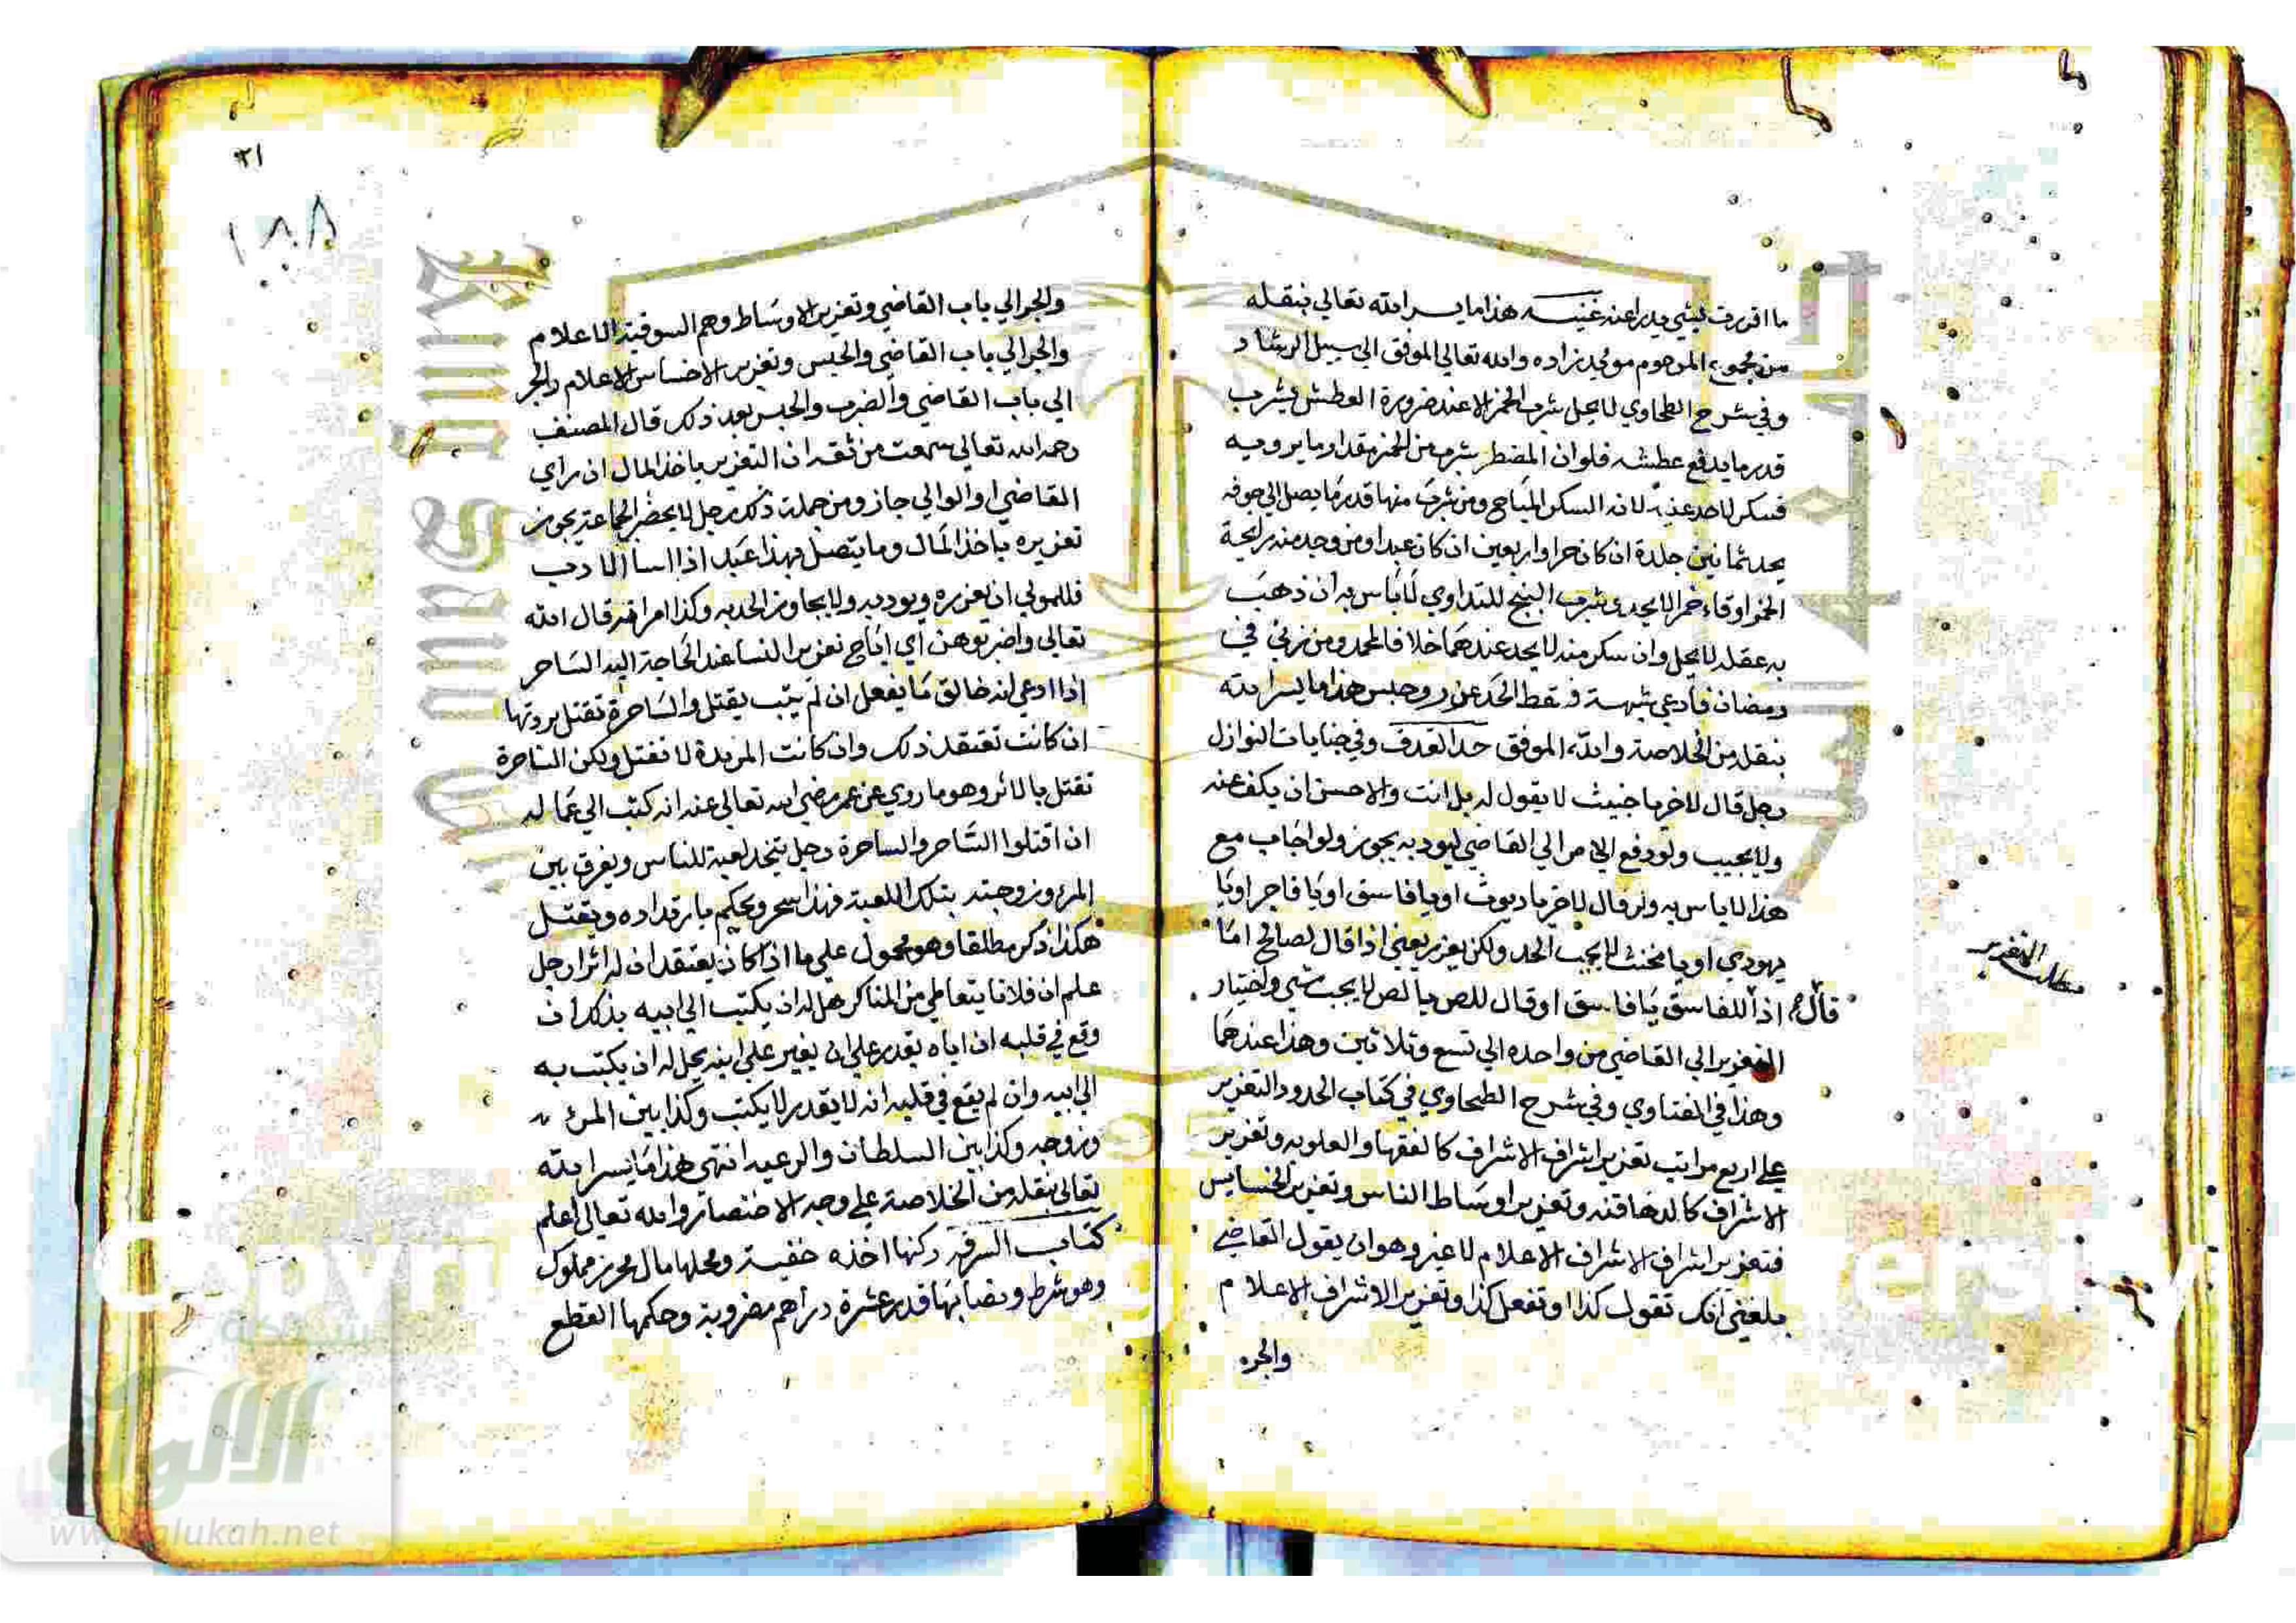 ما اقررت بشي يدراعنه غنيــه هذا ما يســر الله تعالي بنقــله
من مجموع المرحوم مويد زاده والله تعالي الموفق الي سبيل الرشاد
وفي شرح الطحاوي لا يحل شرب الخمر الا عند ضرورة العطش يشرب
قدر ما يدفع عطشه فلو ان المضطر شرب من الخمر مقدار ما يرويه
فسكر لا حد عليه لانه السكر المباح ومن شرب منها قدر ما يصل الي جوفه
يحد ثمانين جلدة ان كان حرا واربعين ان كان عبدا ومن وجد منه رايحة
الخمر او قاء خمرا لا يحد وشرب البنج للتداوي لا باس به ان ذهب
به عقله لا يحل وان سكر منه لا يحد عندهما خلافا لمحمد ومن زني في
رمضان فادعي شبهة سقط الحد عزر وحبس هذا ما يسر الله
بنقله من الخلاصة والله الموفق حد القدف وفي جنايات النوازل
رجل قال لاخر يا خبيث لا يقول له بل انت والاحسن ان يكف عنه
ولا يجيب ولو رفع الامر الي القاضي ليود به يجوز ولو اجاب مع
هذا لا باس به ولو قال لاخر يا ديوث او يا فاسق او يا فاجر او يا
يهودي او يا مخنث لا يجب الحد ولكن يعزر يعني اذا قال لصالح اما
اذا قال للفاسق يا فاسق او قال للص يا لص لا يجب شي واختيار
التعزير الي القاضي من واحده الي تسع وثلاثين وهذا عندهما
وهذا في الفتاوي وفي شرح الطحاوي في كتاب الحدود التعزير
علي اربع مراتب تعزير اشراف الاشراف كالفقها والعلويه وتعزير
الاشراف كالدهاقنه وتعزير اوساط الناس وتعزير الخسايس
فتعزير اشراف الاشراف الاعلام لا غير وهو ان يقول القاضي
بلغني انك تقول كذا او تفعل كذا وتعزير الاشراف الاعلام
والجر
مطلب التعزير
٢١
١٨٨
والجر الي باب القاضي وتعزير الاوساط وهم السوقية الاعلام
والجر الي باب القاضي والحبس وتعزير الاخساس الاعلام والجر
الي باب القاضي والضرب والحبس بعد ذلك قال المصنف
رحمه الله تعالي سمعت من ثقة ان التعزير باخذ المال ان راي
القاضي او الوالي جاز ومن جملة ذلك رجل لا يحضر الجماعة يجوز
تعزيره باخذ المال وما يتصل بهذا عبد اذا اسا الادب
فللمولي ان يعزره ويوديه ولا يجاوز الحد به وكذا امراته قال الله
تعالي واضربوهن اي اباح تعزير النسا عند الحاجة اليه الساحر
اذا ادعي انه خالق ما يفعل ان لم يتب يقتل والساحرة تقتل بردتها
ان كانت تعتقد ذلك وان كانت المرتدة لا تقتل ولكن الساحرة
تقتل بالاثر وهو ما روي عن عمر رضي الله تعالي عنه انه كتب الي عماله
ان اقتلوا الساحر والساحرة رجل يتخذ لعبة للناس ويفرق بين
المرء وزوجته بتلك اللعبة فهذا سحر ويحكم بارتداده ويقتــل
هكذا ذكر مطلقا وهو محمول علي ما اذا كان يعتقد ان له اثرا رجل
علم ان فلانا يتعاطي من المناكر هل له ان يكتب الي ابيه بذلك ان
وقع في قلبه ان اباه يقدر علي ان يغير علي ابنه يحل له ان يكتب به
الي ابيه وان لم يقع في قلبه انه لا يقدر لا يكتب وكذا بين المرء
وزوجه وكذا بين السلطان والرعيه انتهي هذا ما يسر الله
تعالي بنقله من الخلاصة علي وجه الاختصار والله تعالي اعلم
كتاب السرقة ركنها اخذه خفيــة ومحلها مال محرز مملوك
وهو شرط ونصابها قدر عشرة دراهم مضروبة وحكمها القطع
شبكة
الألوكة
www.alukah.net